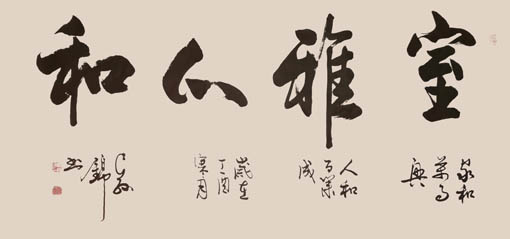 室雅人和
家和
萬事
興
人和
百業
成
歲在
丁酉
深月
錦
书